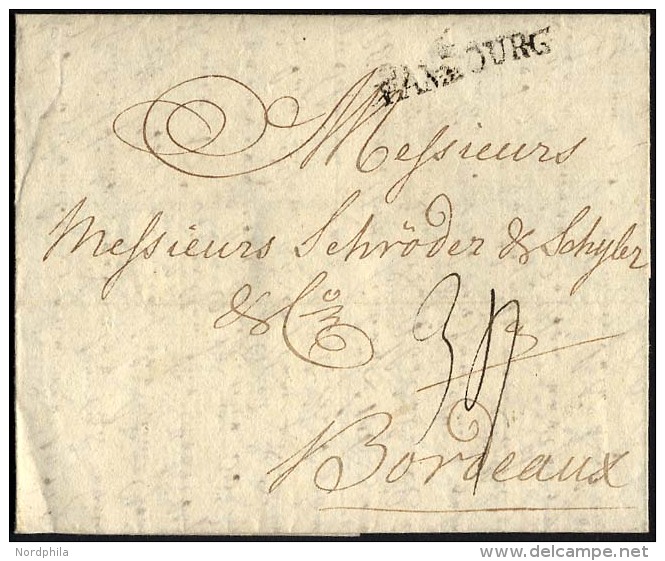 HAMBOURG
Messieurs
Messieurs Schröder & Schyler
& Co
Bordeaux
Nordphila
delcampe.net